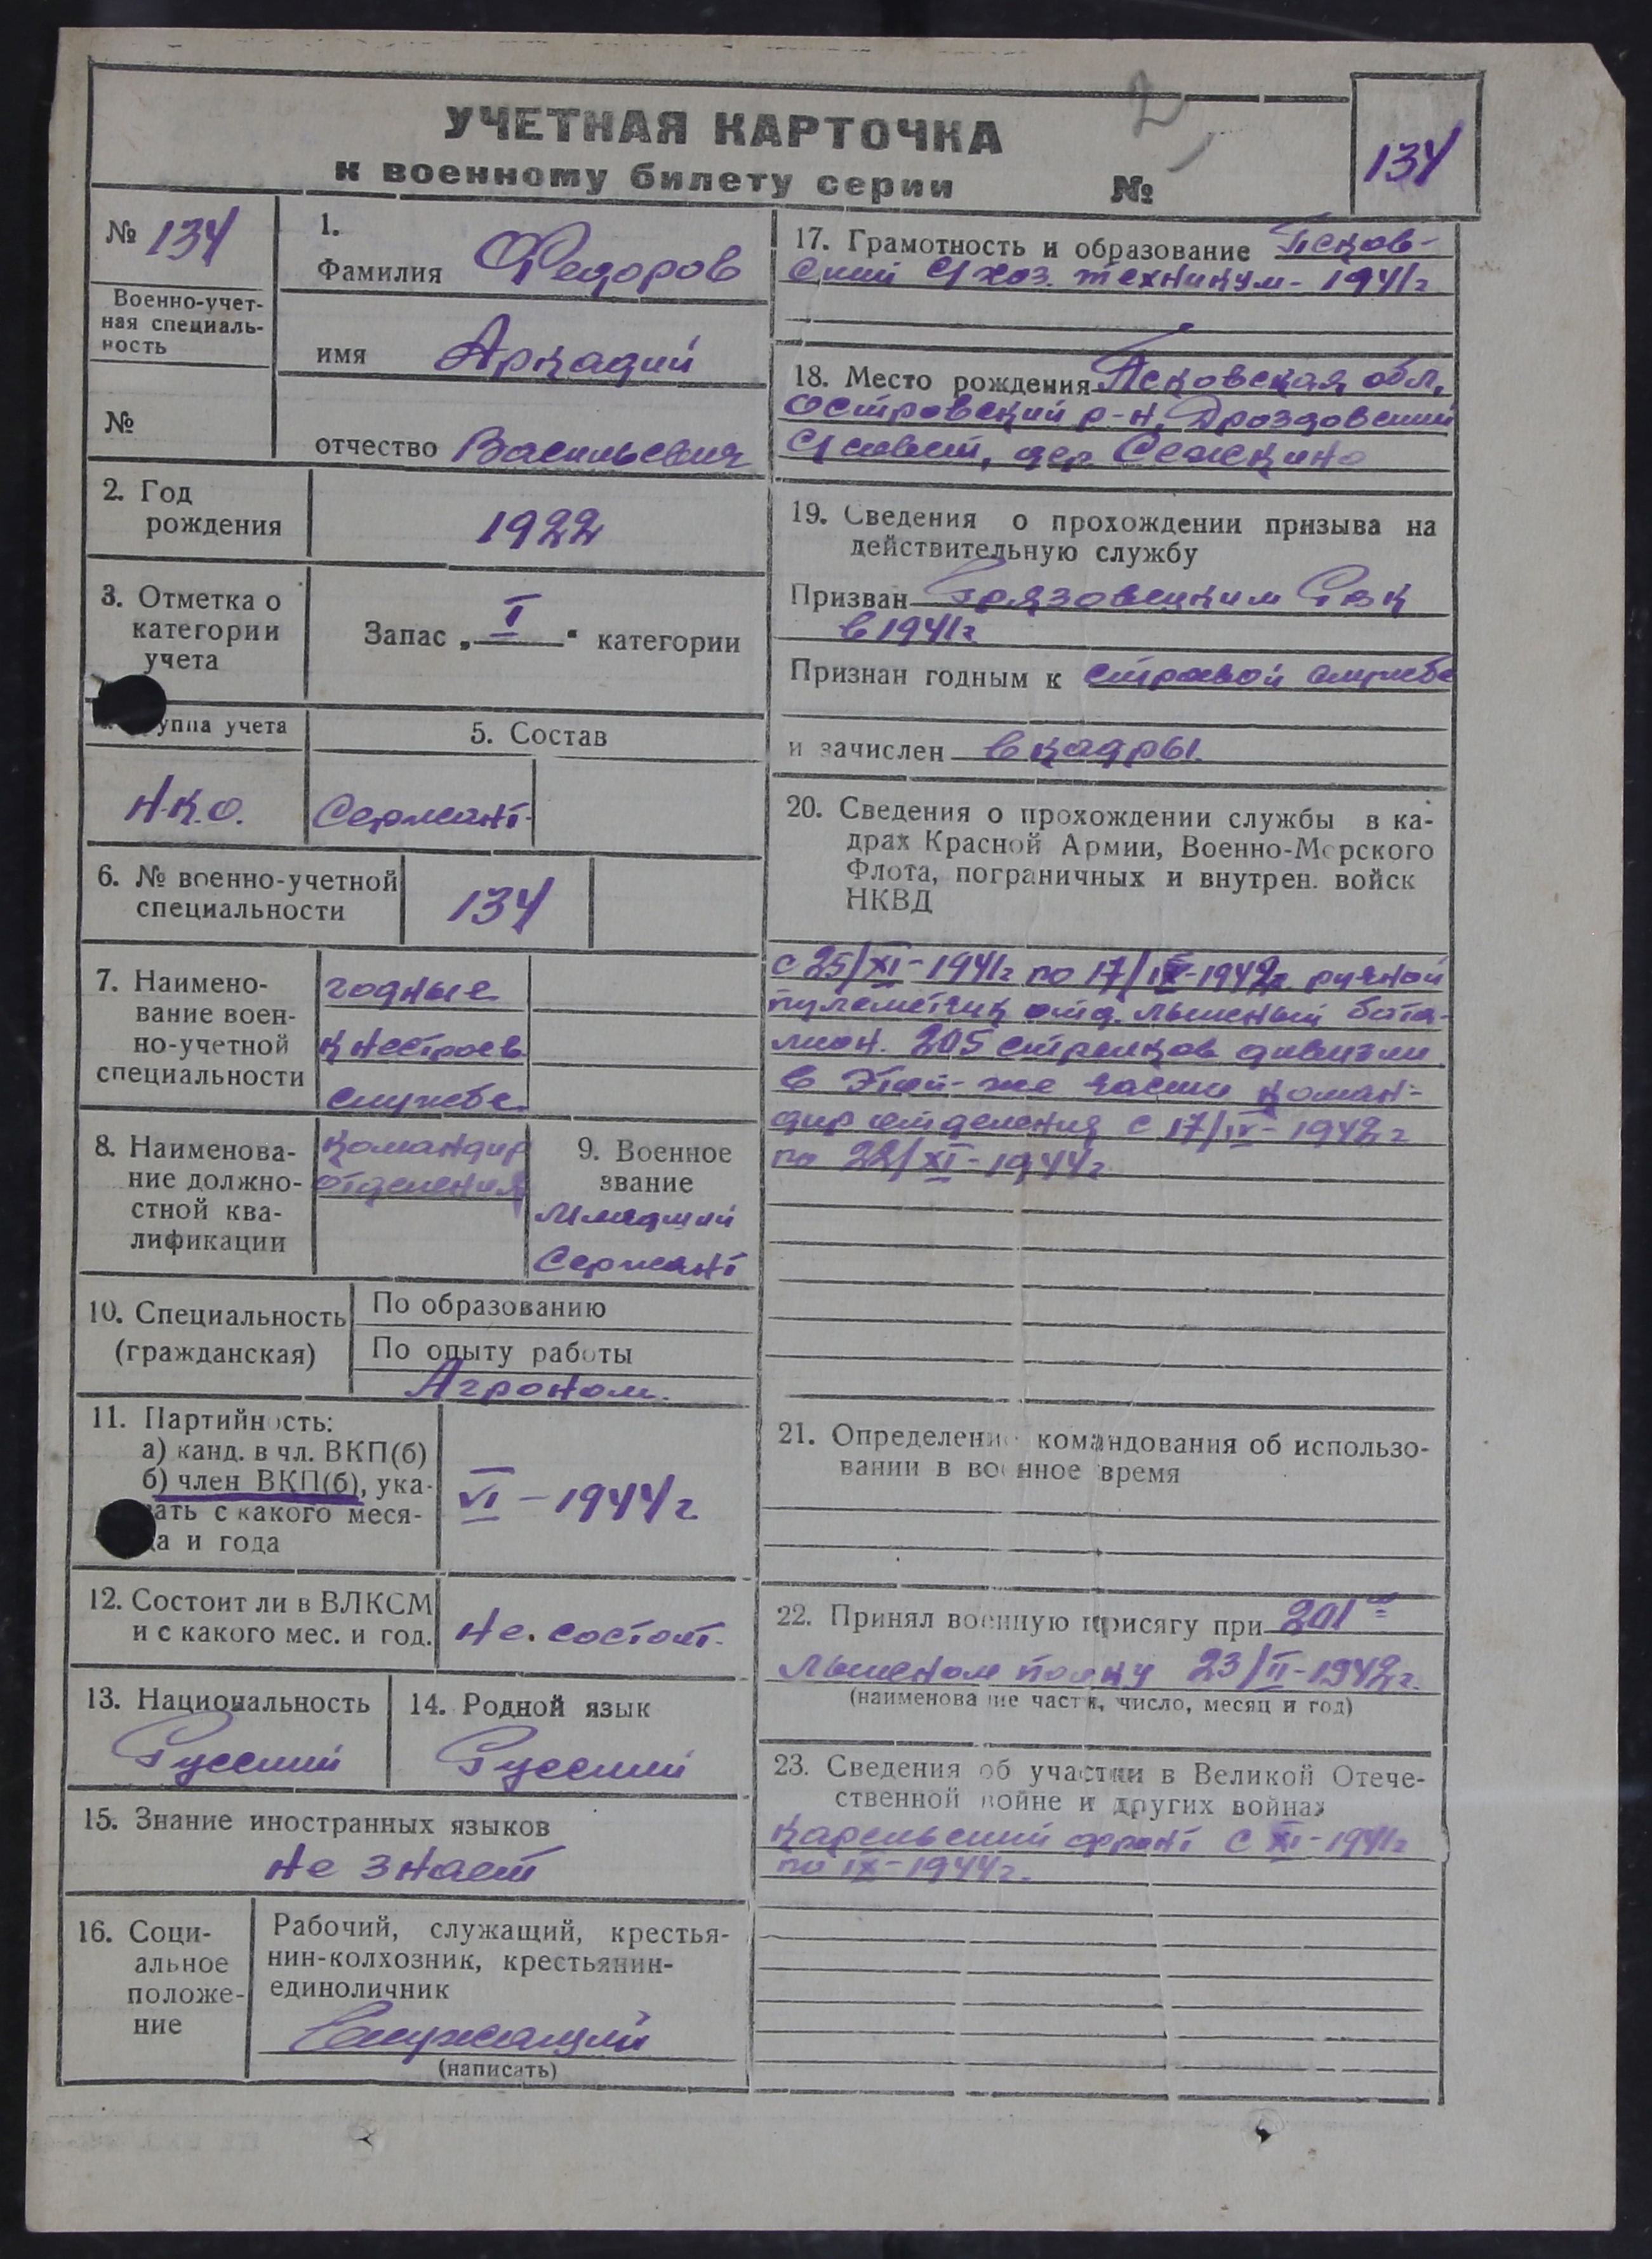 УЧЕТНАЯ КАРТОЧКА
к военному билету серии №
2
134
№ 134
Военно-учет-
ная специаль-
ность
№
1.
Фамилия Федоров
имя Аркадий
отчество Васильевич
2. Год
рождения
1922
3. Отметка о
категории
учета
Запас „ I " категории
уппа учета
Н.К.О.
5. Состав
Сержант.
6. № военно-учетной
специальности
134
7. Наимено-
вание воен-
но-учетной
специальности
годные
к нестроев
службе.
8. Наименова-
ние должно-
стной ква-
лификации
командир
отделения
9. Военное
звание
Младший
Сержант
10. Специальность
(гражданская)
По образованию
По опыту работы
Агроном.
11. Партийность:
а) канд. в чл. ВКП(б)
б) член ВКП(б), ука-
зать с какого меся-
ца и года
VI – 1944 г
12. Состоит ли в ВЛКСМ
и с какого мес. и год.
Не. состоит.
13. Национальность
Русский
14. Родной язык
Русский
15. Знание иностранных языков
не знает
16. Соци-
альное
положе-
ние
Рабочий, служащий, крестья-
нин-колхозник, крестьянин-
единоличник
Служащий
(написать)
17. Грамотность и образование Псков-
ский С/хоз. техникум - 1941 г
18. Место рождения Псковская обл,
Островский р-н, Дроздовский
С/совет, дер.
19. Сведения о прохождении призыва на
действительную службу
Призван Грязовецким РВК
в 1941 г.
Признан годным к строевой службе
и зачислен в кадры.
20. Сведения о прохождении службы в ка-
драх Красной Армии, Военно-Морского
Флота, пограничных и внутрен. войск
НКВД
с 25/XI – 1941 г по 17/IV-1942 г ручной
пулеметчик отд. лыжный бата-
лион. 205 стрелков дивизии.
в этой-же части коман-
дир отделения с 17/IV – 1942 г
по 22/XI – 1944 г
21. Определение командования об использо-
вании в военное время
22. Принял военную присягу при 201 ом
лыжном полку 23/II – 1942 г.
(наименование части, число, месяц и год)
23. Сведения об участии в Великой Отече-
ственной войне и других войнах
Карельский фронт с XI – 1941 г
по IX – 1944 г.